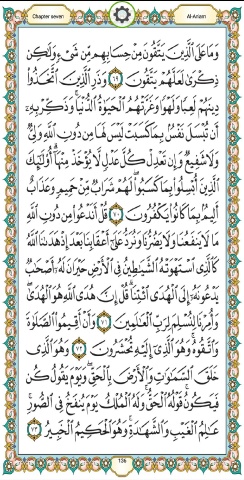 Chapter seven Al-An'am
وَمَا عَلَى ٱلَّذِينَ يَتَّقُونَ مِنْ حِسَابِهِم مِّن شَىْءٍ وَلَـٰكِن
ذِكْرَىٰ لَعَلَّهُمْ يَتَّقُونَ ٦٩ وَذَرِ ٱلَّذِينَ ٱتَّخَذُوا۟
دِينَهُمْ لَعِبًا وَلَهْوًا وَغَرَّتْهُمُ ٱلْحَيَوٰةُ ٱلدُّنْيَا وَذَكِّرْ بِهِۦٓ
أَن تُبْسَلَ نَفْسٌۢ بِمَا كَسَبَتْ لَيْسَ لَهَا مِن دُونِ ٱللَّهِ وَلِىٌّ
وَلَا شَفِيعٌ وَإِن تَعْدِلْ كُلَّ عَدْلٍ لَّا يُؤْخَذْ مِنْهَآ أُو۟لَـٰٓئِكَ
ٱلَّذِينَ أُبْسِلُوا۟ بِمَا كَسَبُوا۟ لَهُمْ شَرَابٌ مِّنْ حَمِيمٍ وَعَذَابٌ
أَلِيمٌۢ بِمَا كَانُوا۟ يَكْفُرُونَ ٧٠ قُلْ أَنَدْعُوا۟ مِن دُونِ ٱللَّهِ
مَا لَا يَنفَعُنَا وَلَا يَضُرُّنَا وَنُرَدُّ عَلَىٰٓ أَعْقَابِنَا بَعْدَ إِذْ هَدَىٰنَا ٱللَّهُ
كَٱلَّذِى ٱسْتَهْوَتْهُ ٱلشَّيَـٰطِينُ فِى ٱلْأَرْضِ حَيْرَانَ لَهُۥٓ أَصْحَـٰبٌ
يَدْعُونَهُۥٓ إِلَى ٱلْهُدَى ٱئْتِنَا قُلْ إِنَّ هُدَى ٱللَّهِ هُوَ ٱلْهُدَىٰ
وَأُمِرْنَا لِنُسْلِمَ لِرَبِّ ٱلْعَـٰلَمِينَ ٧١ وَأَنْ أَقِيمُوا۟ ٱلصَّلَوٰةَ
وَٱتَّقُوهُ وَهُوَ ٱلَّذِىٓ إِلَيْهِ تُحْشَرُونَ ٧٢ وَهُوَ ٱلَّذِى
خَلَقَ ٱلسَّمَـٰوَٰتِ وَٱلْأَرْضَ بِٱلْحَقِّ وَيَوْمَ يَقُولُ كُن
فَيَكُونُ قَوْلُهُ ٱلْحَقُّ وَلَهُ ٱلْمُلْكُ يَوْمَ يُنفَخُ فِى ٱلصُّورِ
عَـٰلِمُ ٱلْغَيْبِ وَٱلشَّهَـٰدَةِ وَهُوَ ٱلْحَكِيمُ ٱلْخَبِيرُ ٧٣
136